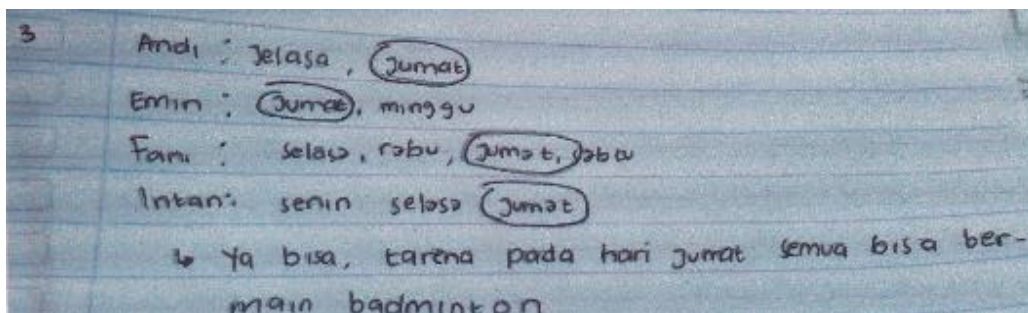 3 Andi : Jelasa, Jumat
Emin : Jumat, minggu
Fani : selasa, rabu, Jumat, sabtu
Intan : senin selasa Jumat
↳ Ya bisa, karena pada hari Jumat semua bisa ber-
main badminton